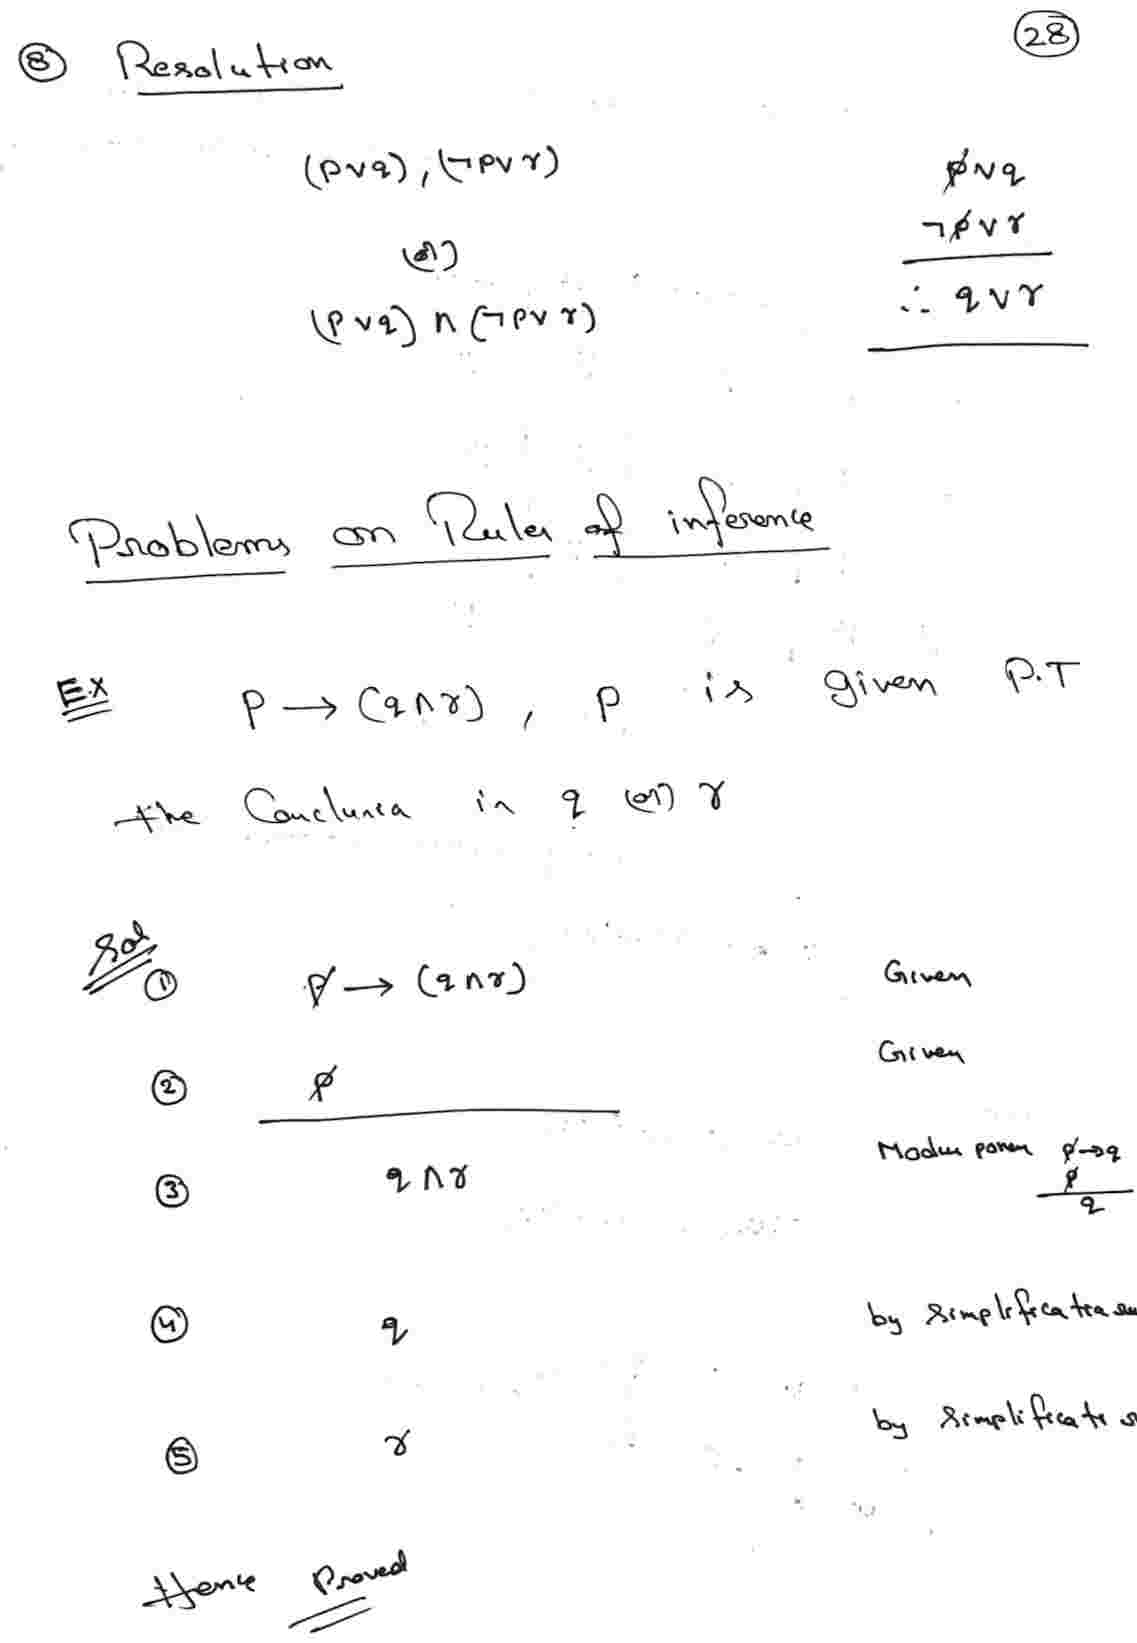 28
8 Resolution
(p∨q), (¬p∨r)
(or)
(p∨q) ∧ (¬p∨r)
p∨q
¬p∨r
∴ q∨r
Problems on Rules of inference
Ex p → (q∧r), p is given P.T
the Conclusion is q (or) r
Sol
1 p → (q∧r) Given
2 p Given
3 q∧r Modus ponens p→q
p
q
4 q by simplification
5 r by simplificati
Hence Proved